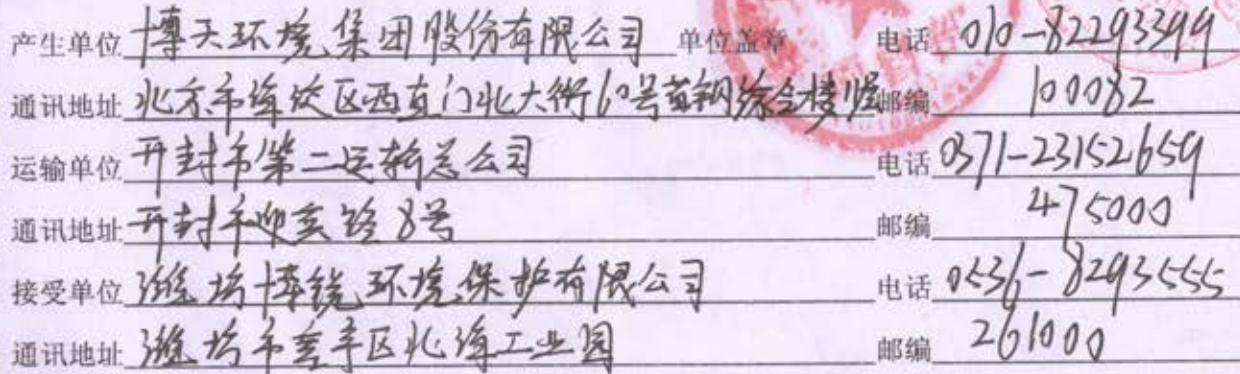 产生单位 博天环境集团股份有限公司 单位盖章 电话 010-82293399
通讯地址 北京市海淀区西直门北大街60号首钢综合楼 邮编 100082
运输单位 开封市第二运输总公司 电话 0371-23152659
通讯地址 开封市迎宾路8号 邮编 475000
接受单位 潍坊博锐环境保护有限公司 电话 0536-8293555
通讯地址 潍坊市奎文区北海工业园 邮编 261000